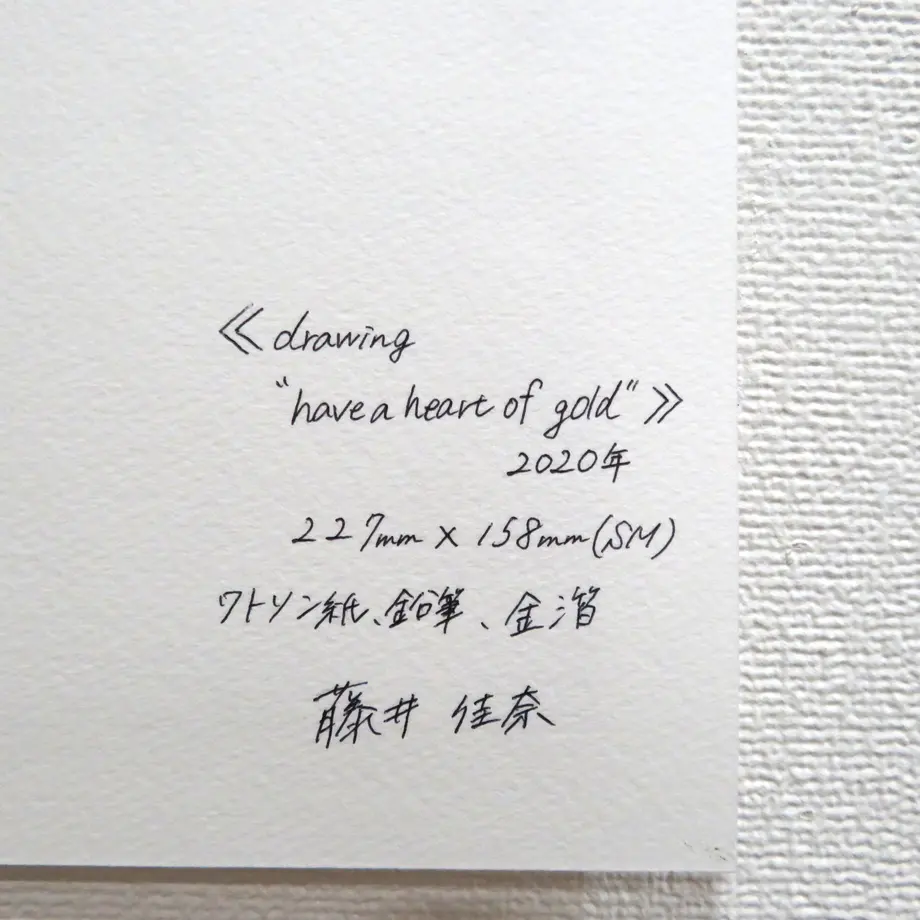 ≪drawing
"have a heart of gold"≫
2020年
227mm × 158mm(SM)
ワトソン紙、鉛筆、金箔
藤井 佳奈